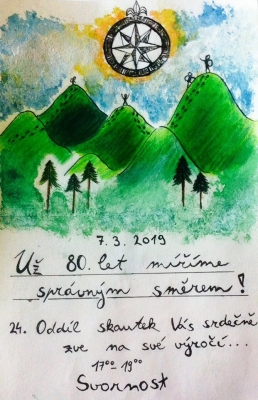 7.3.2019
Už 80. let míříme
správným směrem!
24. Oddíl skautek Vás srdečně
zve na své výročí...
17⁰⁰ 19⁰⁰
Svornost